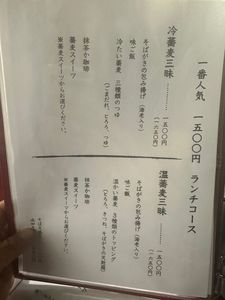 一番人気 一五〇〇円 ランチコース
冷蕎麦三昧 ………… 一五〇〇円
(一六五〇円)
そばがきの包み揚げ(海老入り)
味ご飯
冷たい蕎麦 三種類のつゆ
(ごまだれ、とろろ、つゆ)
抹茶か珈琲
蕎麦スイーツ
※蕎麦スイーツからお選びください。
温蕎麦三昧 ………… 一五〇〇円
(一六五〇円)
そばがきの包み揚げ(海老入り)
味ご飯
温かい蕎麦 3種類のトッピング
(とろろ、きつね、そばがきの天麩羅)
抹茶か珈琲
蕎麦スイーツ
※蕎麦スイーツからお選びください。